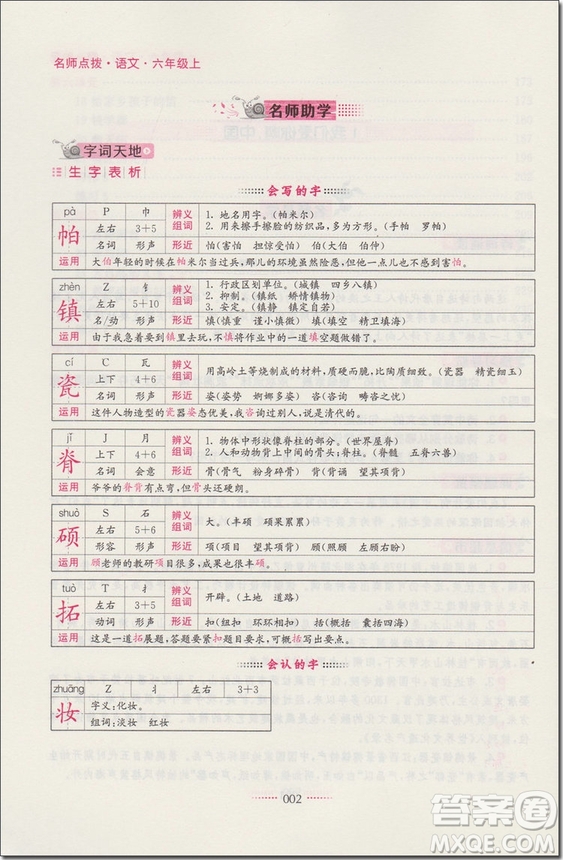 名师点拨·语文·六年级上
名师助学
字词天地
生字表析
会写的字
pà P 巾 辨义组词 1. 地名用字。(帕米尔)
帕 左右 3+5 2. 用来擦手擦脸的纺织品，多为方形。(手帕 罗帕)
名词 形声 形近 怕(害怕 担惊受怕) 伯(大伯 伯仲)
运用 大伯年轻的时候在帕米尔当过兵，那儿的环境虽然险恶，但他一点儿也不害怕。
zhèn Z 钅 辨义组词 1. 行政区划单位。(城镇 四乡八镇)
镇 左右 5+10 2. 抑制。(镇纸 矫情镇物)
3. 安定。(镇静 镇定自若)
名/动 形声 形近 慎(慎重 谨小慎微) 填(填空 精卫填海)
运用 由于我急着要到镇里去玩，不慎将作业中的一道填空题做错了。
cí C 瓦 辨义组词 用高岭土等烧制成的材料，质硬而脆，比陶质细致。(瓷器 精瓷细玉)
瓷 上下 4+6
名词 形声 形近 姿(姿势 婀娜多姿) 咨(咨询 畴咨之忧)
运用 这件人物造型的瓷器姿态优美，我咨询过别人，说是清代的。
jǐ J 月 辨义组词 1. 物体中形状像脊柱的部分。(世界屋脊)
脊 上下 4+6 2. 人和动物背上中间的骨头；脊柱。(脊髓 五脊六兽)
名词 会意 形近 骨(骨气 粉身碎骨) 背(背包 虎背熊腰)
运用 爷爷的脊背有点驼，但骨头还硬朗。
shuò S 石 辨义组词 大。(丰硕 硕果累累)
硕 左右 5+6
形容 形声 形近 项(项目 望其项背) 顾(照顾 左顾右盼)
运用 顾老师的教研项目很多，成果也很丰硕。
tuò T 扌 辨义组词 开辟。(土地 道路)
拓 左右 3+5
动词 形声 形近 扣(纽扣 环环相扣) 括(概括 囊括四海)
运用 这是一道拓展题，答题要紧扣题目要求，可概括写出要点。
会认的字
zhuāng Z 丬 左右 3+3
妆 字义：化妆。
组词：淡妆 红妆
002
答案圈
MXQE.COM